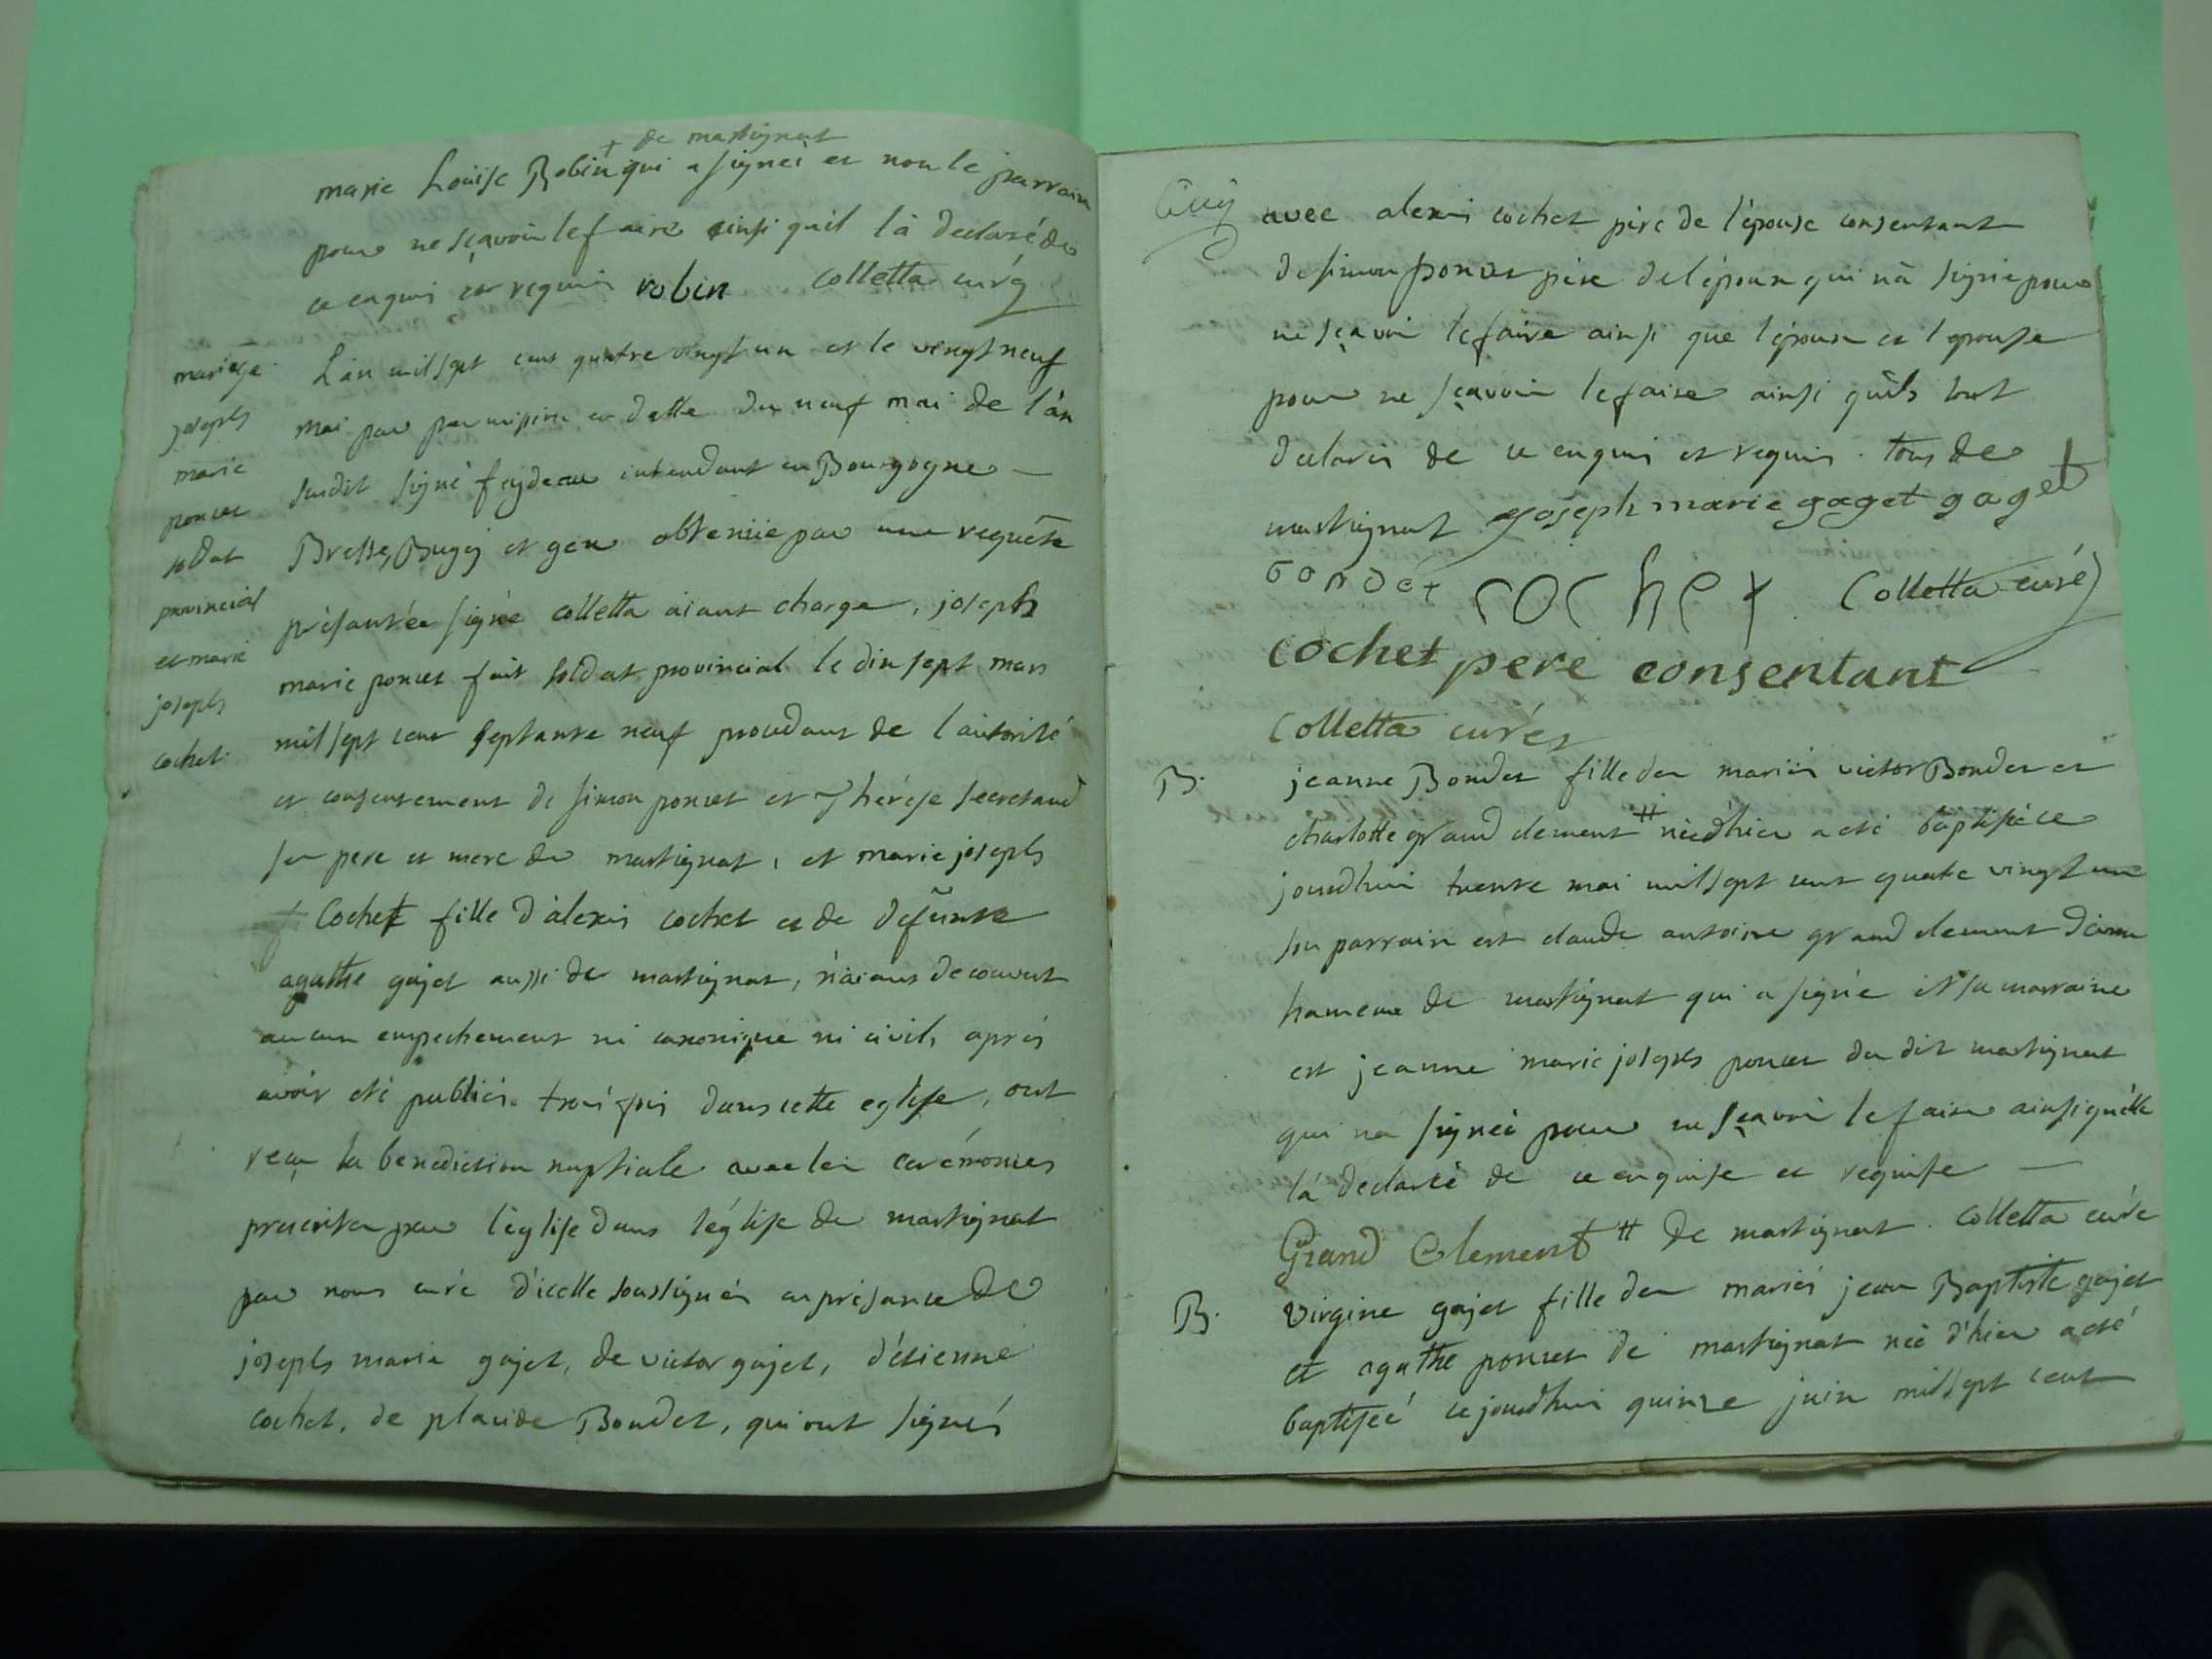 + de martignat
marie Louise Robin qui a signéé et non le parrain
pour ne sçavoir le faire ainsi quil là declaré de
ce enquis et requis robin Colletta curé
mariage
joseph
marie
poncet
soldat
provincial
et marie
joseph
cochet
L'an mil sept cent quatre vingt un et le vingt neuf
mai par permission en datte du neuf mai de l'an
susdit signé feydeau intendant en Bourgogne
Bresse, Bugey et gex obtenüe par une requête
présantée signée colletta aiant charge, joseph
marie poncet fait soldat provincial le dix sept mars
mil sept cent septante neuf procedant de l'autorité
et consentement de simon poncet et Thérése secretand
ses pere et mere de martignat, et marie joseph
Cochet fille d'alexis cochet et de defunte
agathe gajet aussi de martignat, n'aiant decouvert
aucun empechement ni canonique ni civil, après
avoir eté publiés trois fois dans cette eglise, ont
reçu la benediction nuptiale avec les cerémonies
prescrites par l'église dans l'église de martignat
par nous curé d'icelle soussignés en présance de
joseph marie gajet, de victor gajet, d'étienne
cochet, de placide Bondet, qui ont signés
avec alexis cochet pére de l'épouse consentant
de simon poncet pére de l'époux qui n'à signé pour
ne sçavoir le faire ainsi que l'époux et l'epouse
pour ne sçavoir le faire ainsi qu'ils lont
declarés de ce enquis et requis. tous de
martignat joseph marie gaget gaget
bondet cochet Colletta curé
cochet pere consentant
Colletta curé
B.
jeanne Bondet fille des mariés victor Bondet et
charlotte grand clement # née d'hier a eté baptisée ce
jourdhui trente mai mil sept cent quatre vingt un
son parrain est claude antoine grand clement
hameau de martignat qui a signé et sa marraine
est jeanne marie joseph poncet du dit martignat
qui na signéé pour ne sçavoir le faire ainsi qu'elle
là declaré de ce enquise et requise
Grand Clement # de martignat. Colletta curé
B.
Virgine gajet fille des mariés jean Baptiste gajet
et agathe poncet de martignat néé d'hier a eté
baptiséé ce jourdhui quinze juin mil sept cent